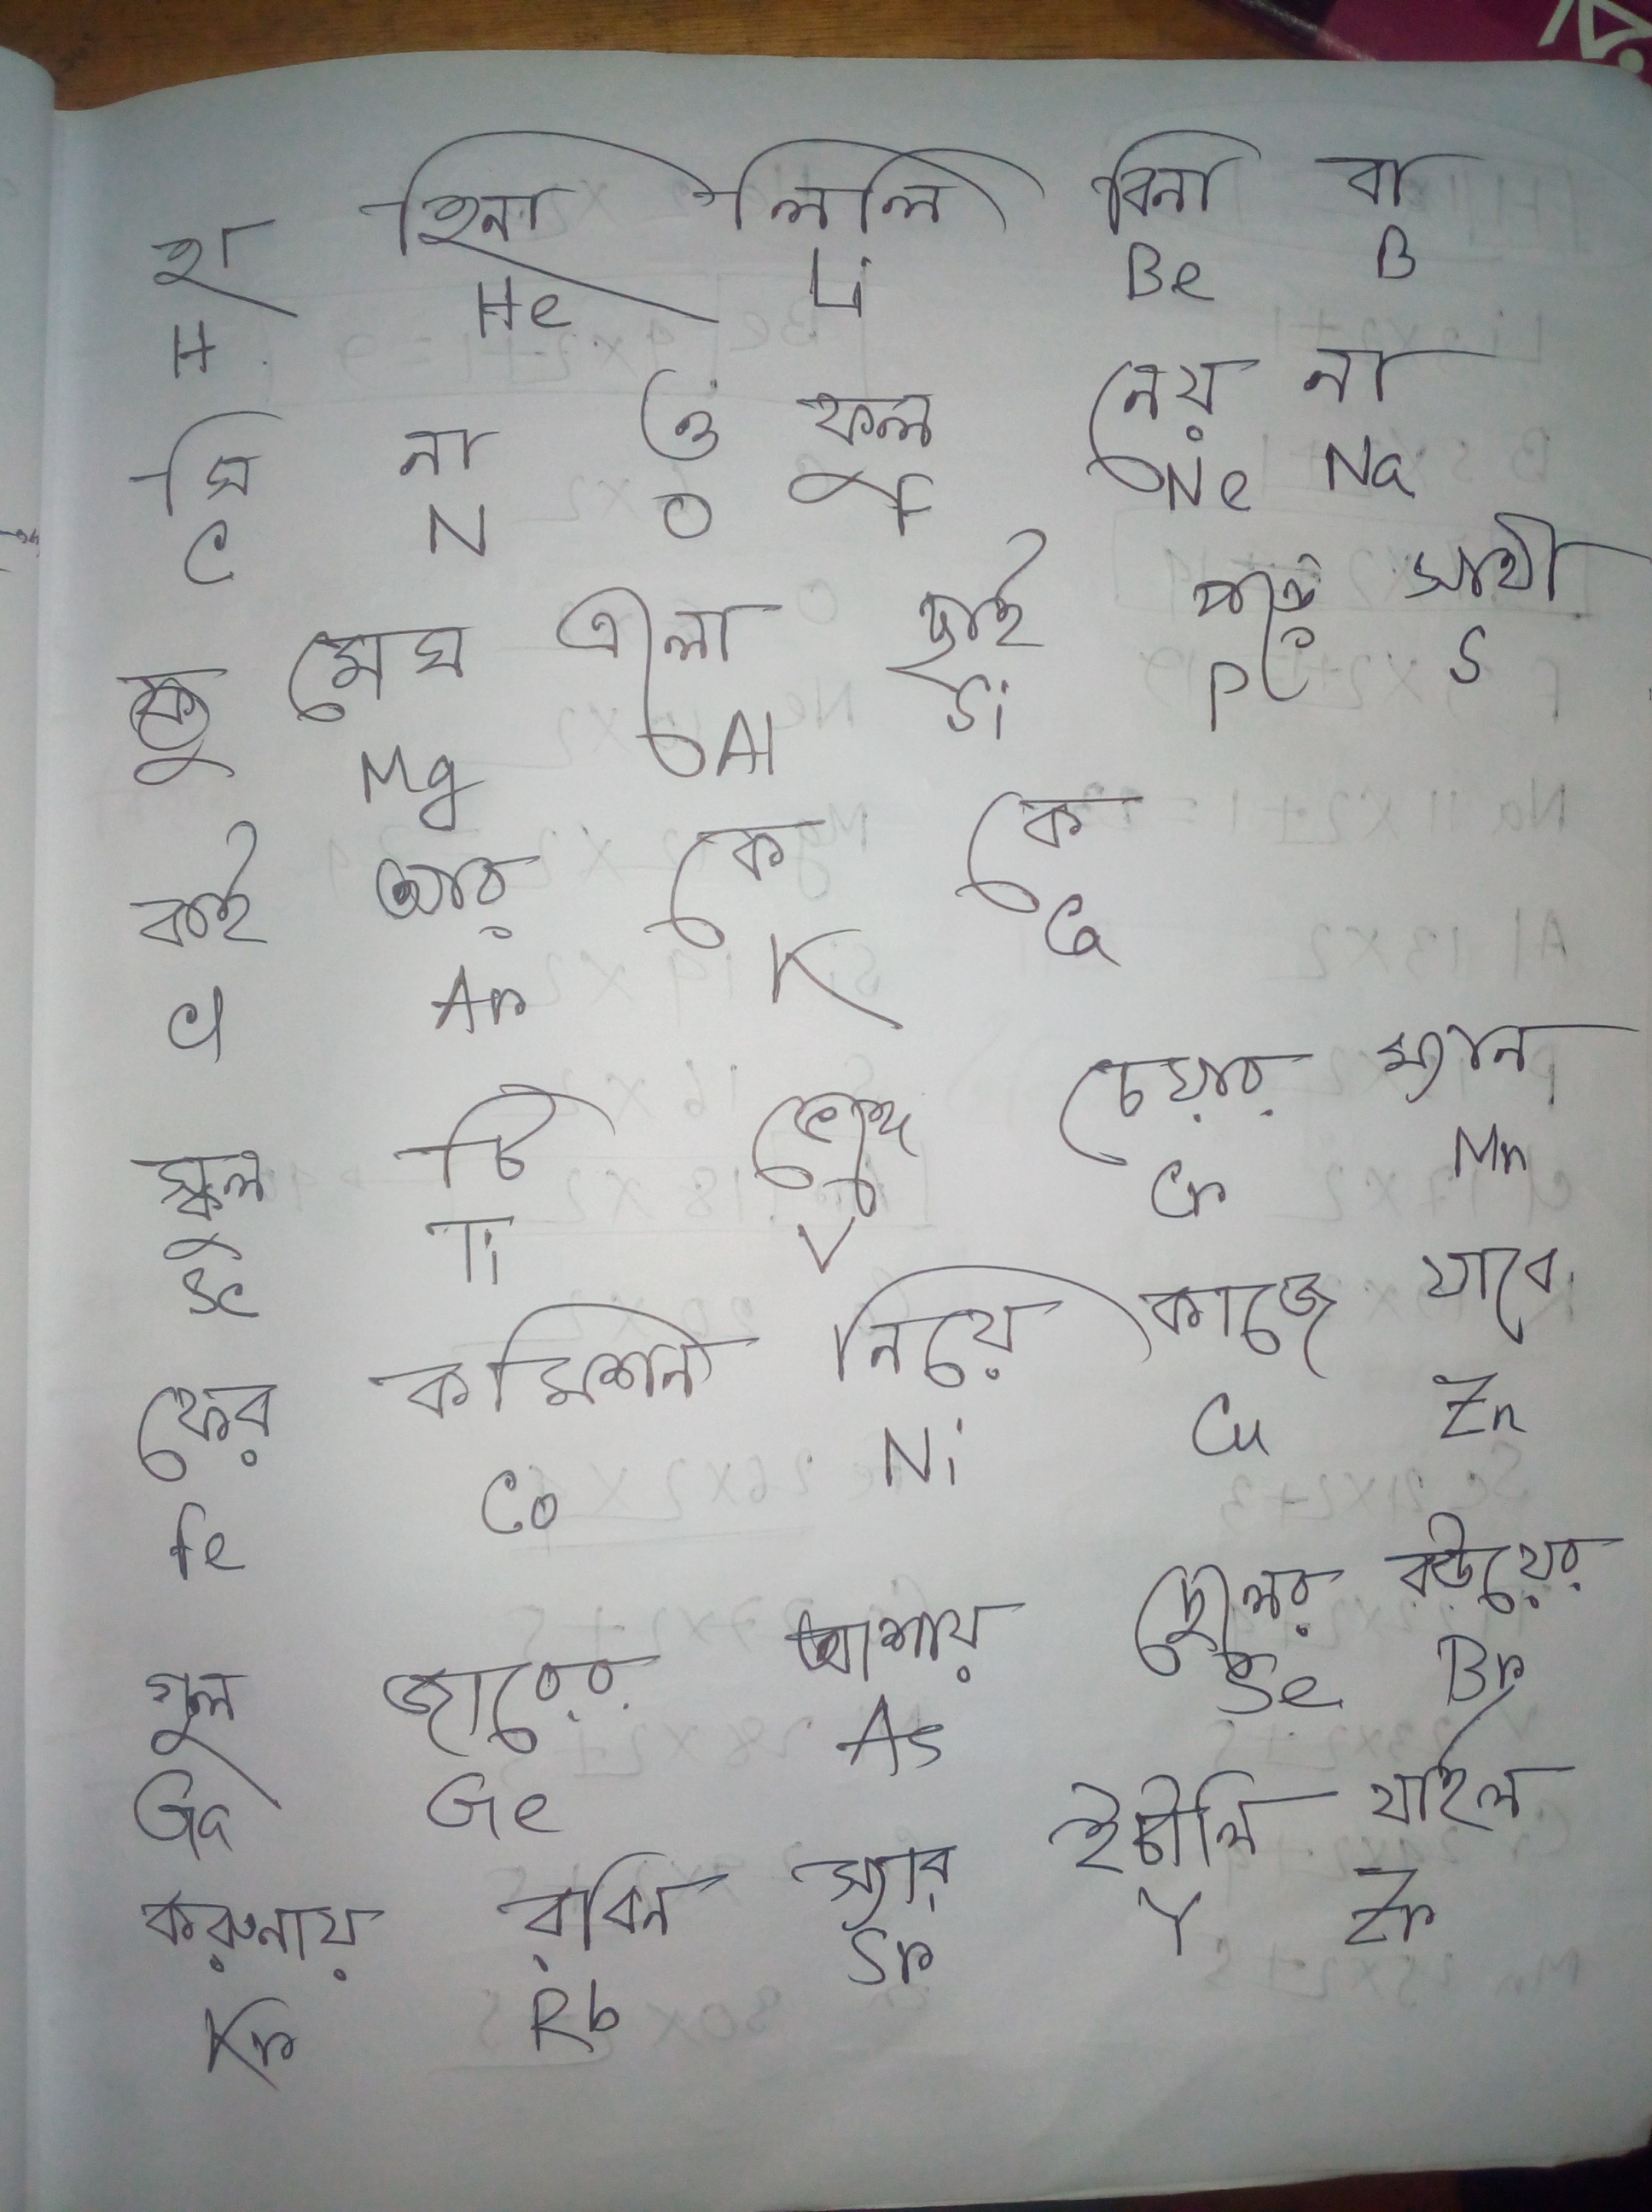 হা হিনা লিলি বিনা বা
H He Li Be B
মি না ও ফুল নেয় না
C N O F Ne Na
মেঘ এলো ভাই পড়ে সাথী
Mg Al Si P S
কই আর কে কে
Cl Ar K Ca
স্কুল টি চেয়ার ম্যান
Sc Ti V Cr Mn
ফের কমিশন নিয়ে কাজে যাবে
Fe Co Ni Cu Zn
গুল জারের আশায় ছেলের বউয়ের
Ga Ge As Se Br
করুনায় রবিন স্যার ইটালি যাইল
Kr Rb Sr Y Zr